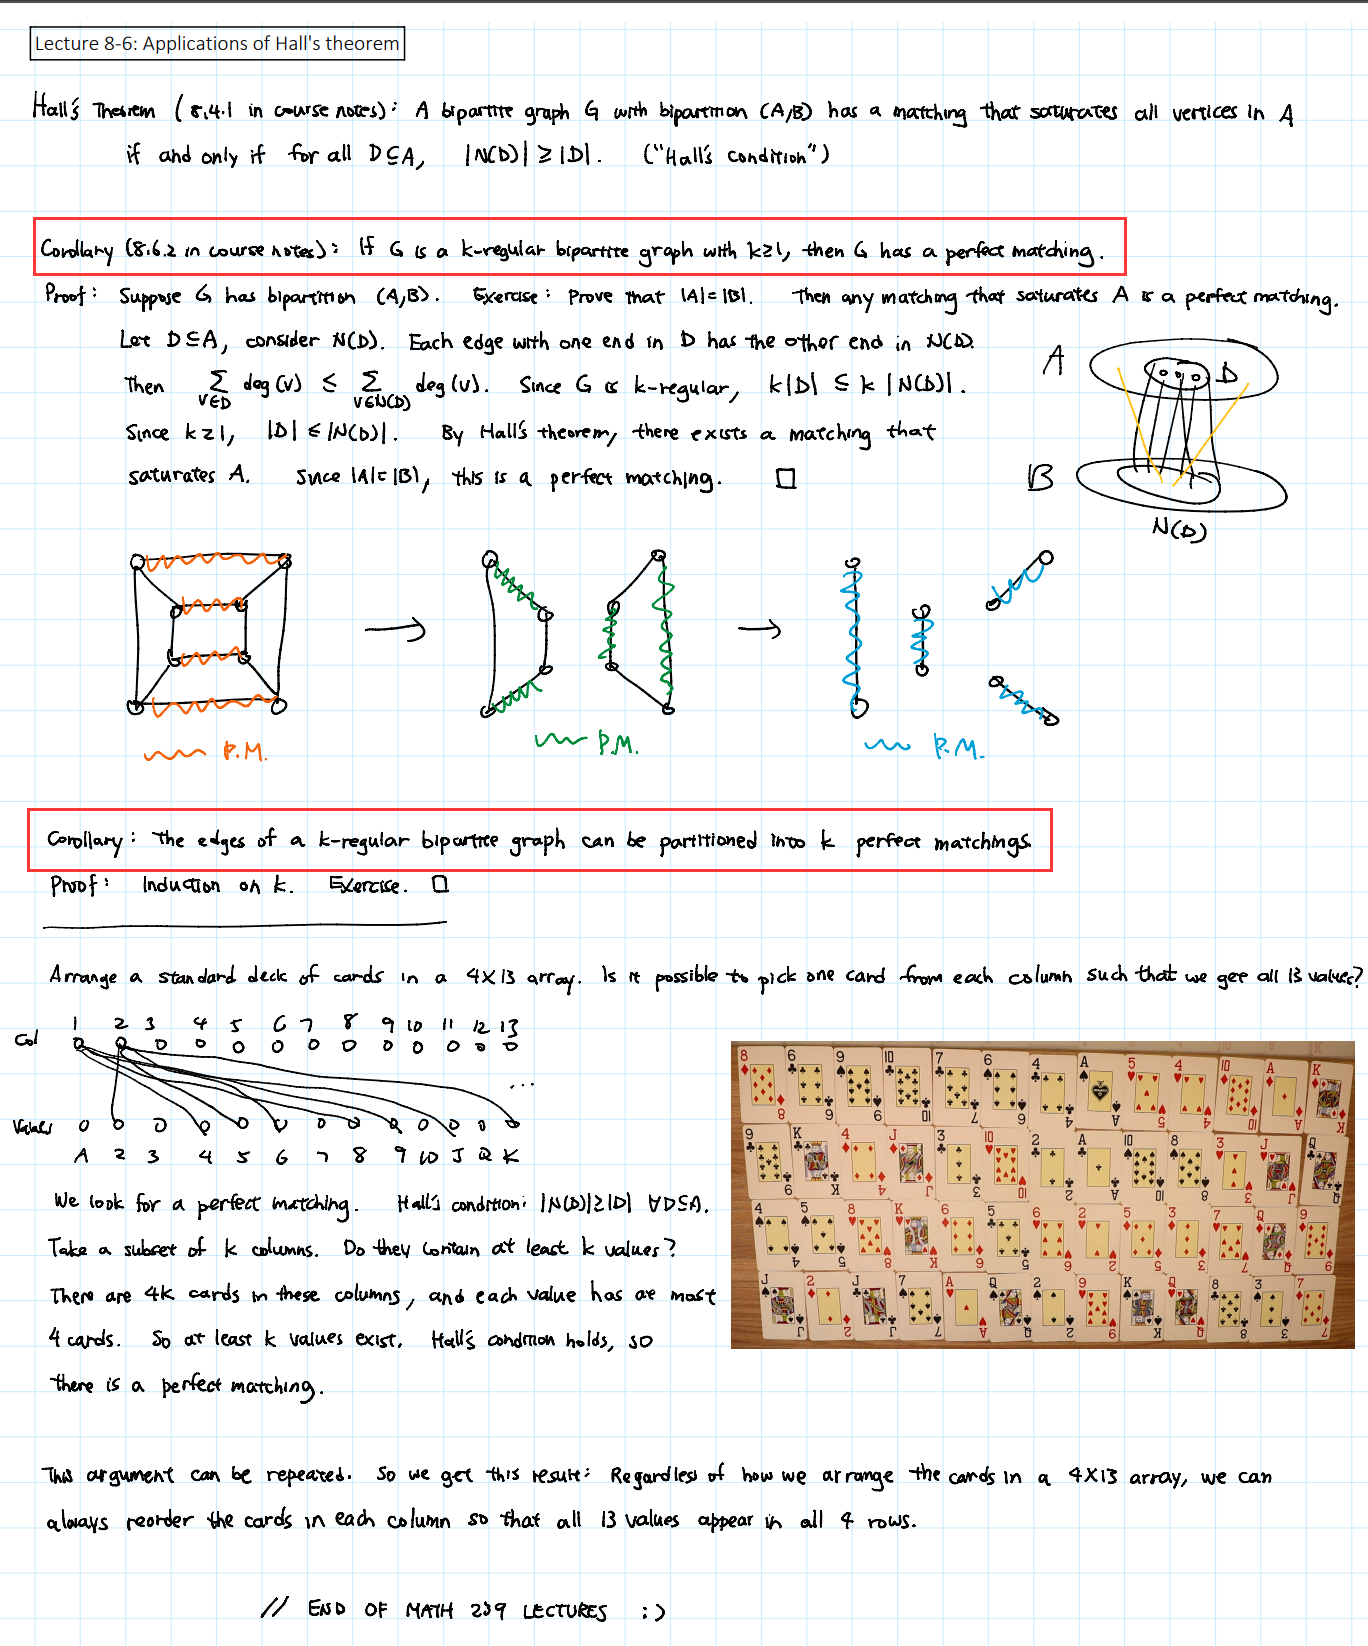 Lecture 8-6: Applications of Hall's theorem
Hall's Theorem (8.4.1 in course notes): A bipartite graph G with bipartition (A,B) has a matching that saturates all vertices in A
if and only if for all D⊆A, |N(D)| ≥ |D|. ("Hall's condition")
Corollary (8.6.2 in course notes): If G is a k-regular bipartite graph with k≥1, then G has a perfect matching.
Proof: Suppose G has bipartition (A,B). Exercise: Prove that |A|=|B|. Then any matching that saturates A is a perfect matching.
Let D⊆A, consider N(D). Each edge with one end in D has the other end in N(D).
Then Σ deg(v) ≤ Σ deg(v). Since G is k-regular, k|D| ≤ k|N(D)|.
v∈D v∈N(D)
Since k≥1, |D| ≤ |N(D)|. By Hall's theorem, there exists a matching that
saturates A. Since |A|=|B|, this is a perfect matching. □
A
D
B
N(D)
P.M.
P.M.
P.M.
Corollary: The edges of a k-regular bipartite graph can be partitioned into k perfect matchings.
Proof: Induction on k. Exercise. □
Arrange a standard deck of cards in a 4×13 array. Is it possible to pick one card from each column such that we get all 13 values?
1 2 3 4 5 6 7 8 9 10 11 12 13
Col
...
Values
A 2 3 4 5 6 7 8 9 10 J Q K
We look for a perfect matching. Hall's condition: |N(D)|≥|D| ∀D⊆A.
Take a subset of k columns. Do they contain at least k values?
There are 4k cards in these columns, and each value has at most
4 cards. So at least k values exist. Hall's condition holds, so
there is a perfect matching.
8 6 9 10 7 6 4 A 5 4 10 A K
9 K 4 J 3 10 2 A 10 8 3 J Q
4 5 8 K 6 5 6 2 5 3 7 Q 9
J 2 J 7 A Q 2 9 K Q 8 3 7
This argument can be repeated. So we get this result: Regardless of how we arrange the cards in a 4×13 array, we can
always reorder the cards in each column so that all 13 values appear in all 4 rows.
// END OF MATH 239 LECTURES :)